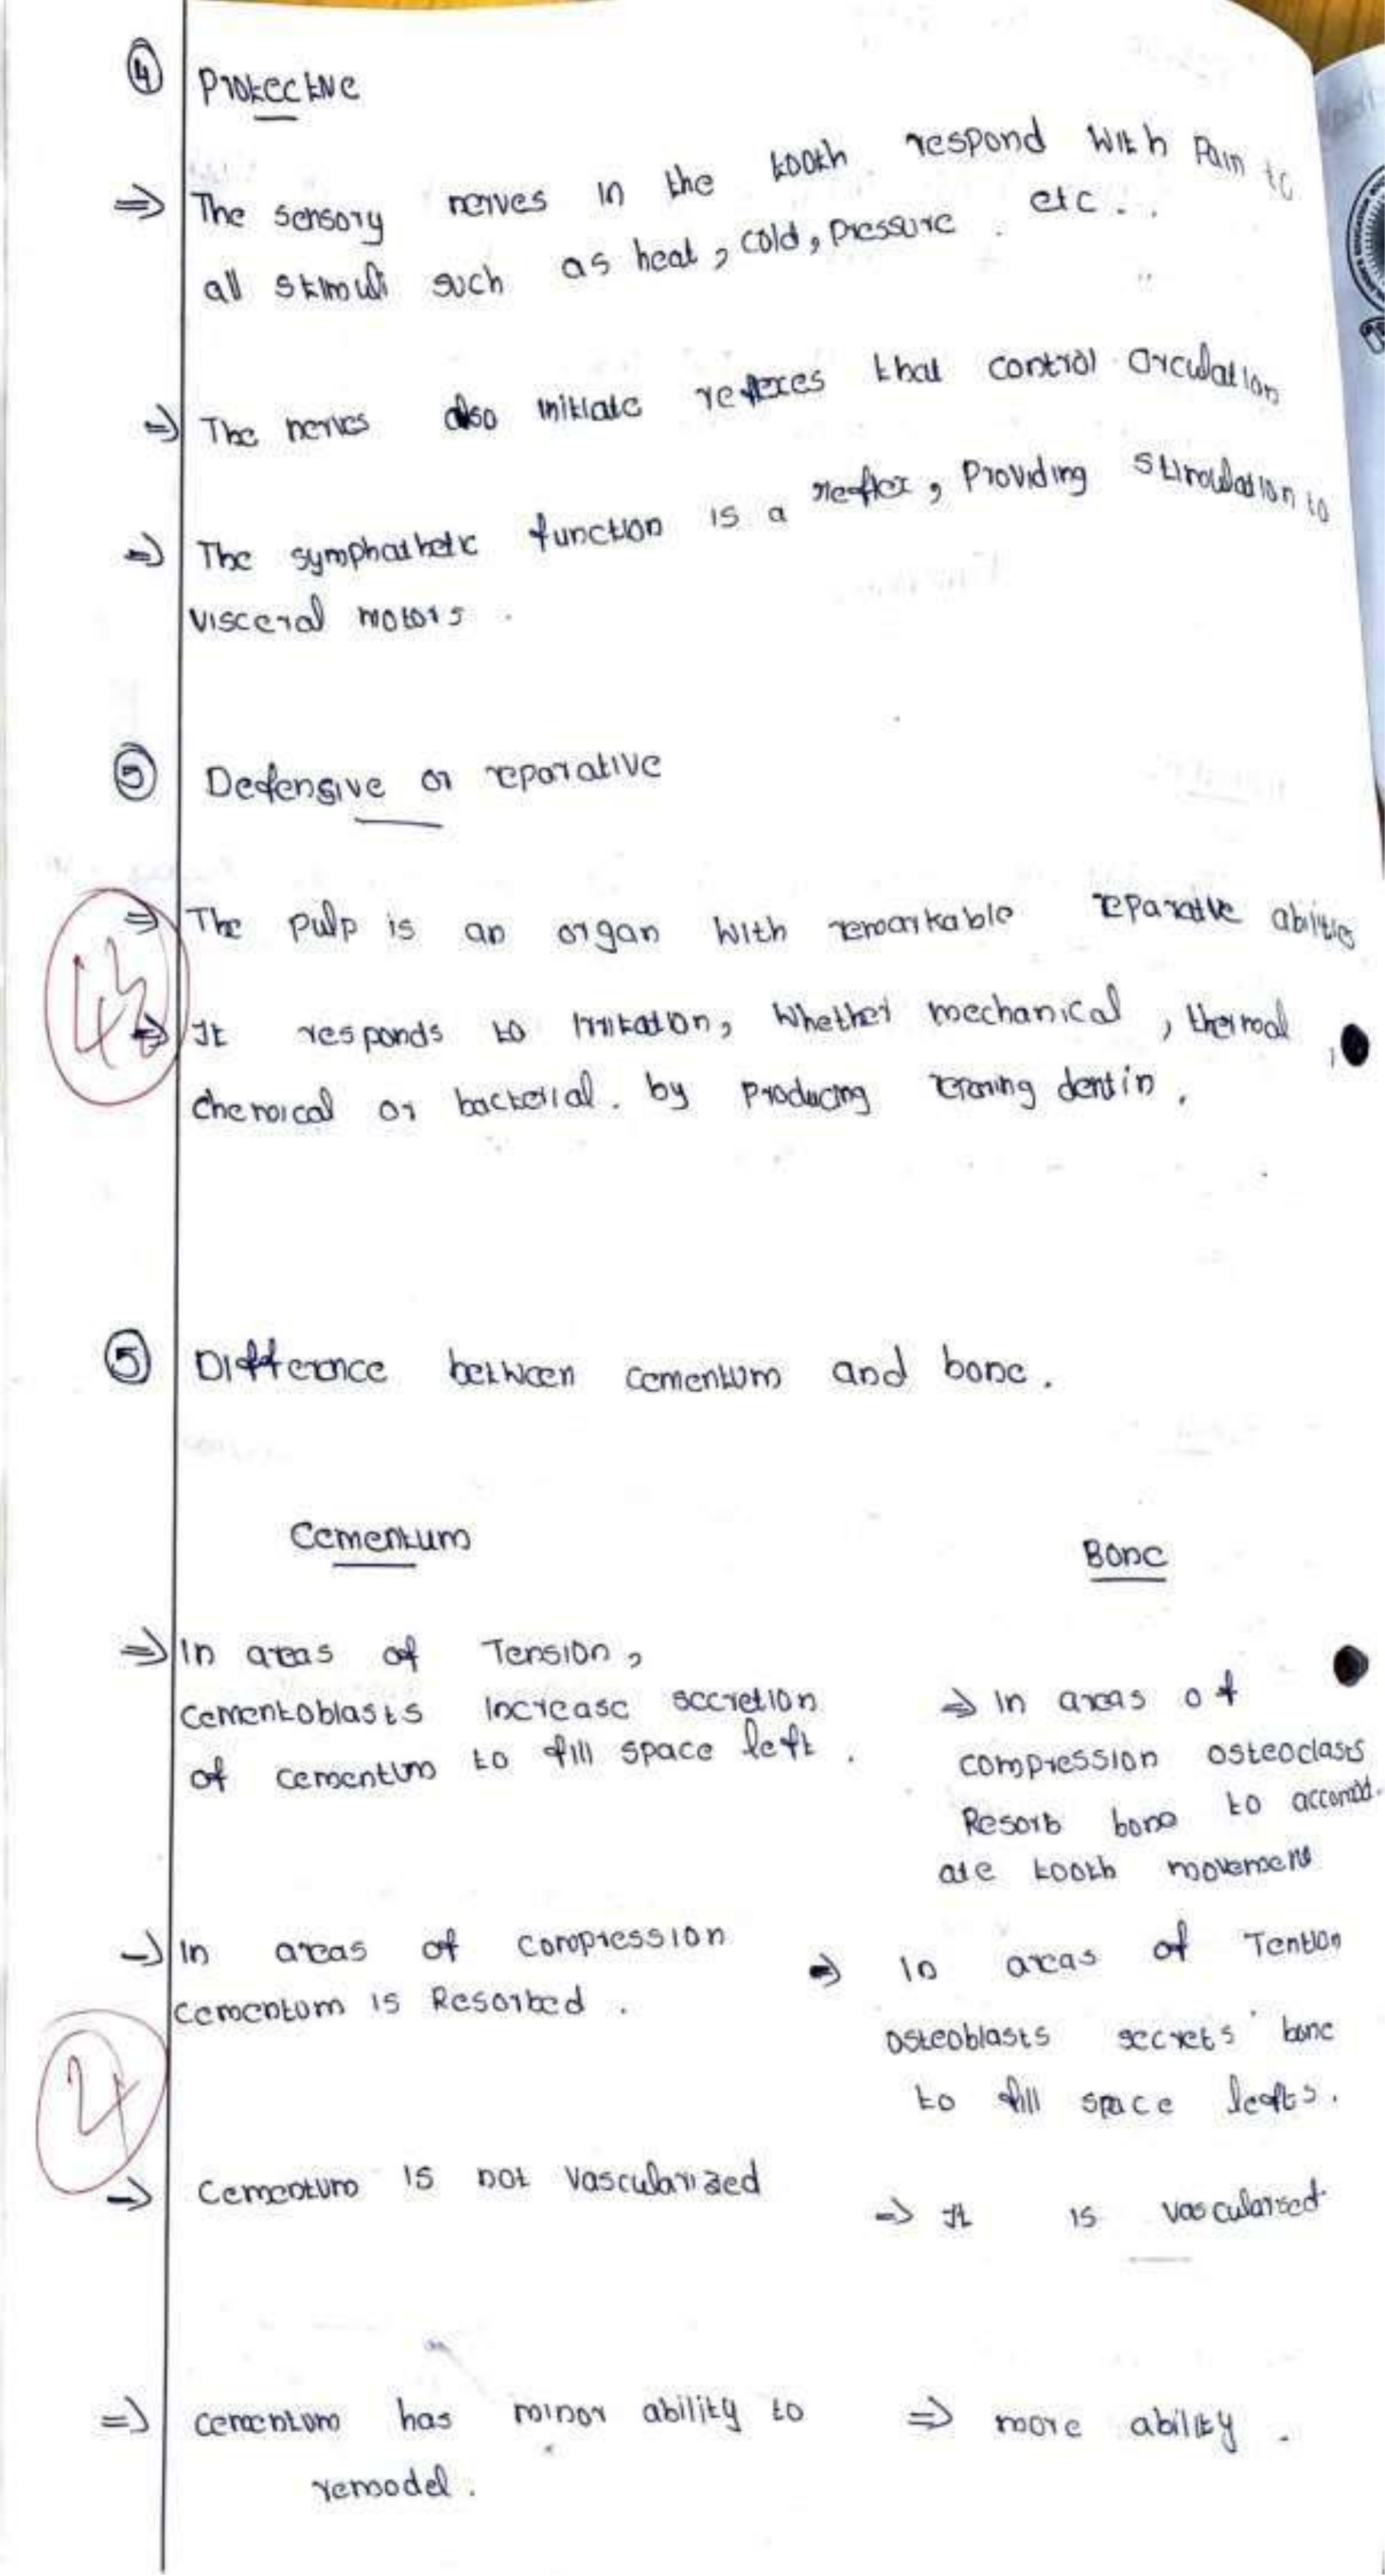 ④ Protective
⇒ The sensory nerves in the tooth respond with Pain to
all stimuli such as heat, cold, pressure. etc..
⇒ The nerves also initiate reflexes that control circulation
⇒ The symphathetic function is a reflex, Providing stimulation to
visceral motors.
⑤ Defensive or reparative
⇒ The pulp is an organ with remarkable reparative abilities
⇒ It responds to irritation, whether mechanical, thermal,
chemical or bacterial. by producing dentin.
⑤ Difference between cementum and bone.
Cementum
Bone
⇒ In areas of Tension,
cementoblasts increase secretion
of cementum to fill space left.
⇒ In areas of
compression osteoclasts
Resorb bone to accomod.
ate tooth movement
⇒ In areas of compression
cementum is Resorbed.
⇒ In areas of Tention
osteoblasts secrets bone
to fill space lefts.
⇒ Cementum is not vascularized
⇒ It is vascularised
⇒ cementum has minor ability to
remodel.
⇒ more ability.